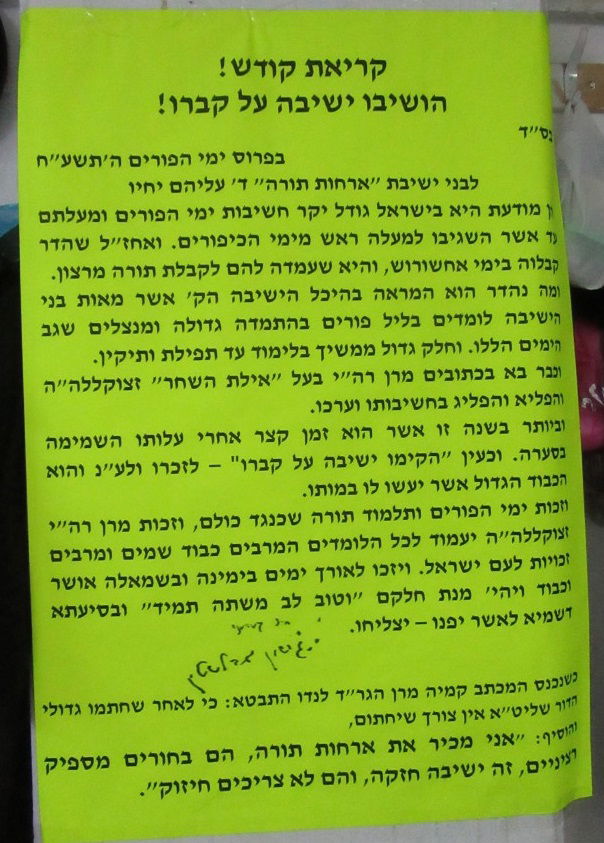 קריאת קודש!
הושיבו ישיבה על קברו!
בס״ד
בפרוס ימי הפורים ה׳תשע״ח
לבני ישיבת ״ארחות תורה״ ד׳ עליהם יחיו
הן מודעת היא בישראל גודל יקר חשיבות ימי הפורים ומעלתם
עד אשר השגיבו למעלה ראש מימי הכיפורים. ואחז״ל שהדר
קבלוה בימי אחשורוש, והיא שעמדה להם לקבלת תורה מרצון.
ומה נהדר הוא המראה בהיכל הישיבה הק׳ אשר מאות בני
הישיבה לומדים בליל פורים בהתמדה גדולה ומנצלים שגב
הימים הללו. וחלק גדול ממשיך בלימוד עד תפילת ותיקין.
וכבר בא בכתובים מרן רה״י בעל ״אילת השחר״ זצוקללה״ה
והפליא והפליג בחשיבותו וערכו.
וביותר בשנה זו אשר הוא זמן קצר אחרי עלותו השמימה
בסערה. וכעין ״הקימו ישיבה על קברו" – לזכרו ולע״נ והוא
הכבוד הגדול אשר יעשו לו במותו.
וזכות ימי הפורים ותלמוד תורה שכנגד כולם, וזכות מרן רה״י
זצוקללה״ה יעמוד לכל הלומדים המרבים כבוד שמים ומרבים
זכויות לעם ישראל. ויזכו לאורך ימים בימינה ובשמאלה אושר
וכבוד ויהי׳ מנת חלקם ״וטוב לב משתה תמיד״ ובסיעתא
דשמיא לאשר יפנו – יצליחו.
כשנכנס המכתב קמיה מרן הגר״ד לנדו התבטא: כי לאחר שחתמו גדולי
הדור שליט״א אין צורך שיחתום,
והוסיף: ״אני מכיר את ארחות תורה, הם בחורים מספיק
רציניים, זה ישיבה חזקה, והם לא צריכים חיזוק״.